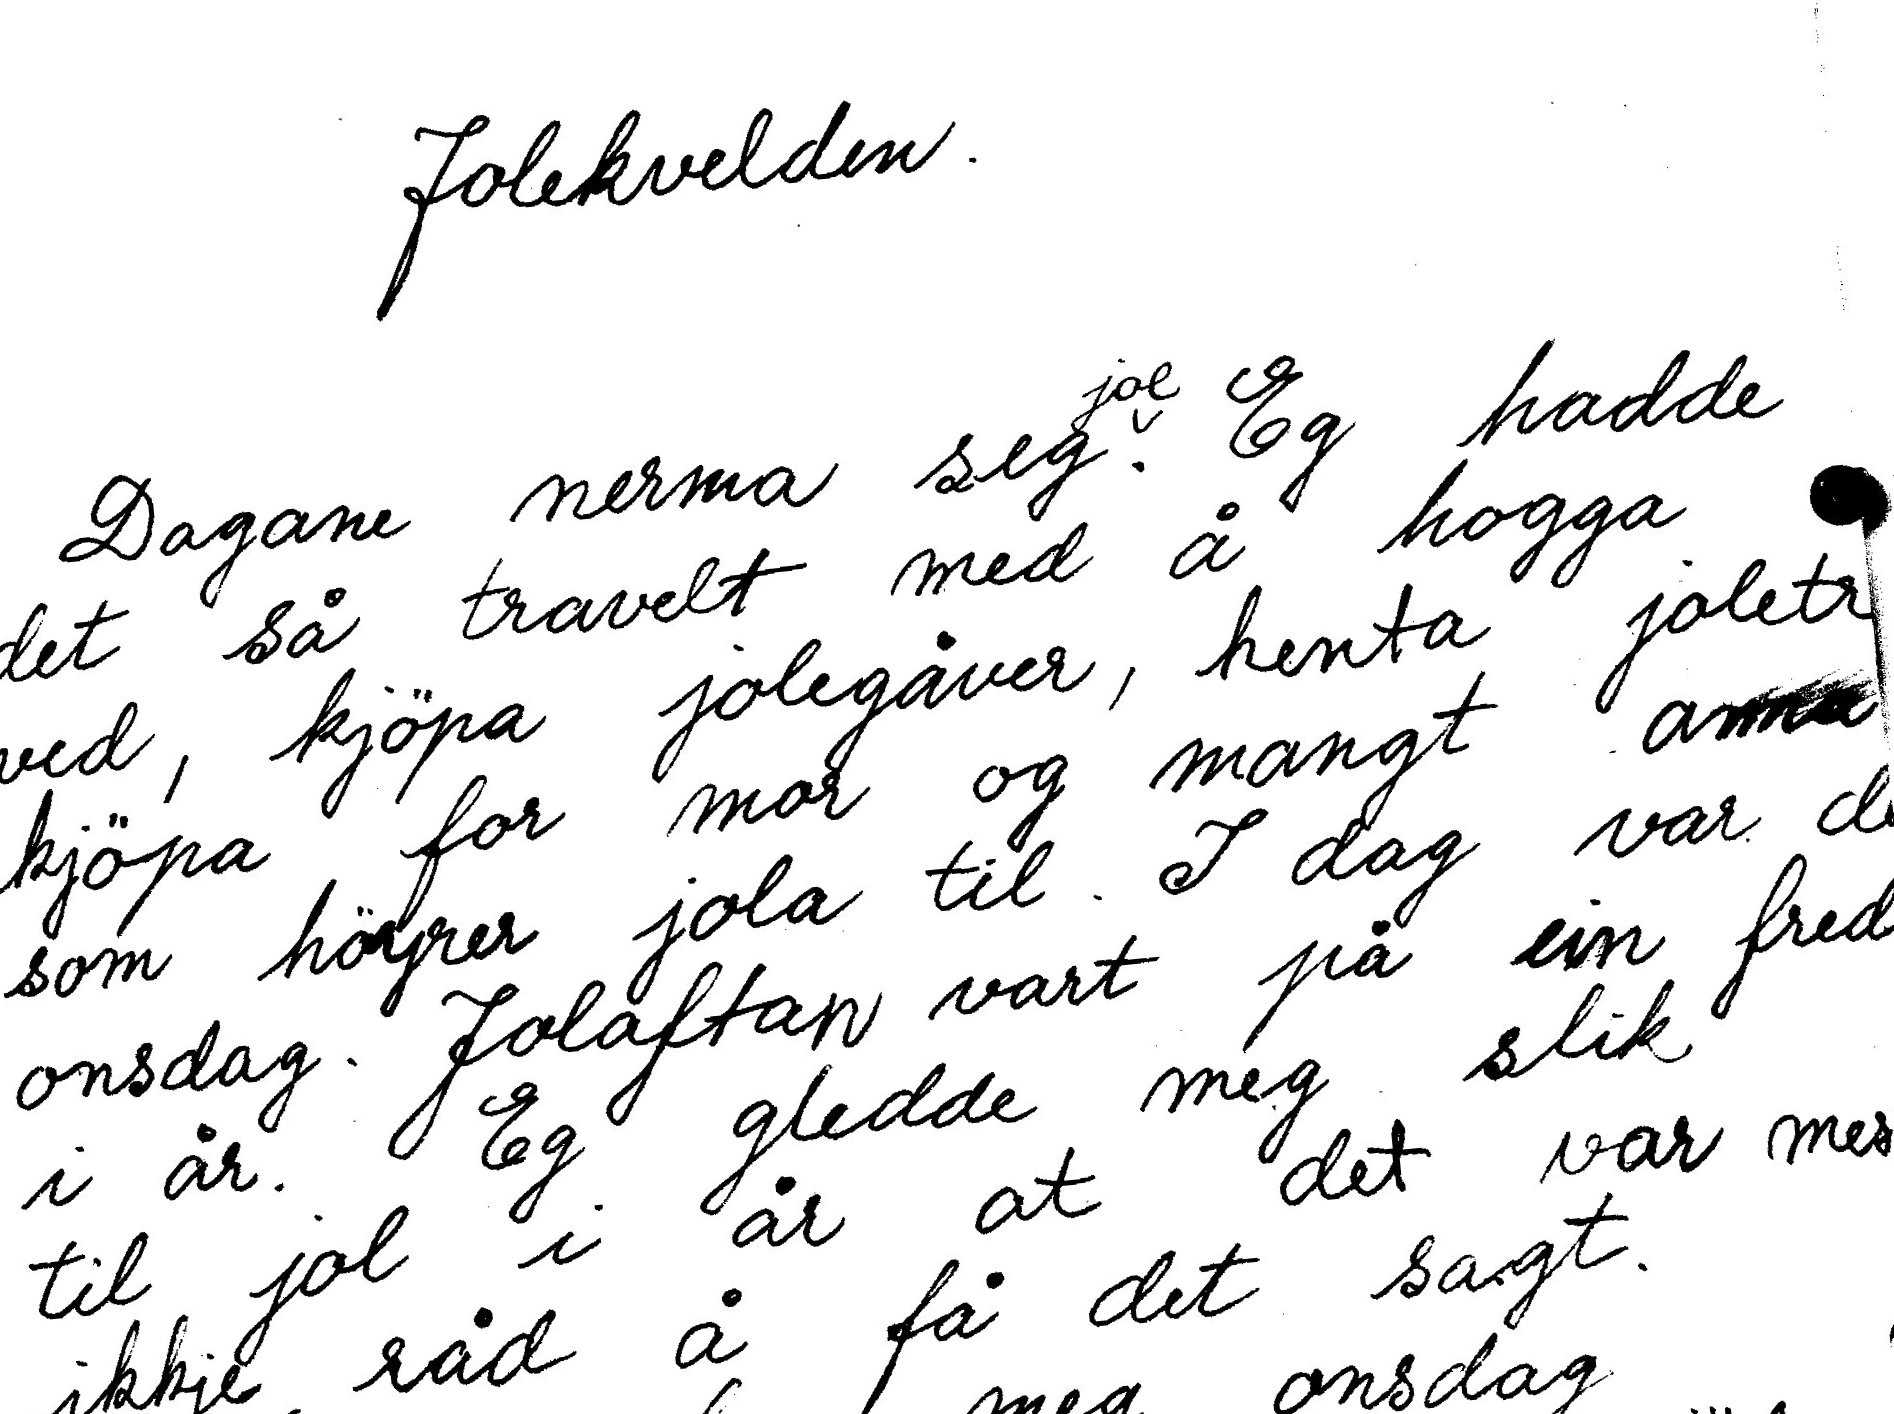 Jolekvelden.
Dagane nerma seg jol. Eg hadde
det så travelt med å hogga
ved, kjöpa jolegåver, henta joletr
kjöpa for mor og mangt anna
som höyrer jola til. I dag var de
onsdag. Jolaftan vart på ein fred
i år. Eg gledde meg slik
til jol i år at det var mes
ikkje råd å få det sagt.
meg onsdag